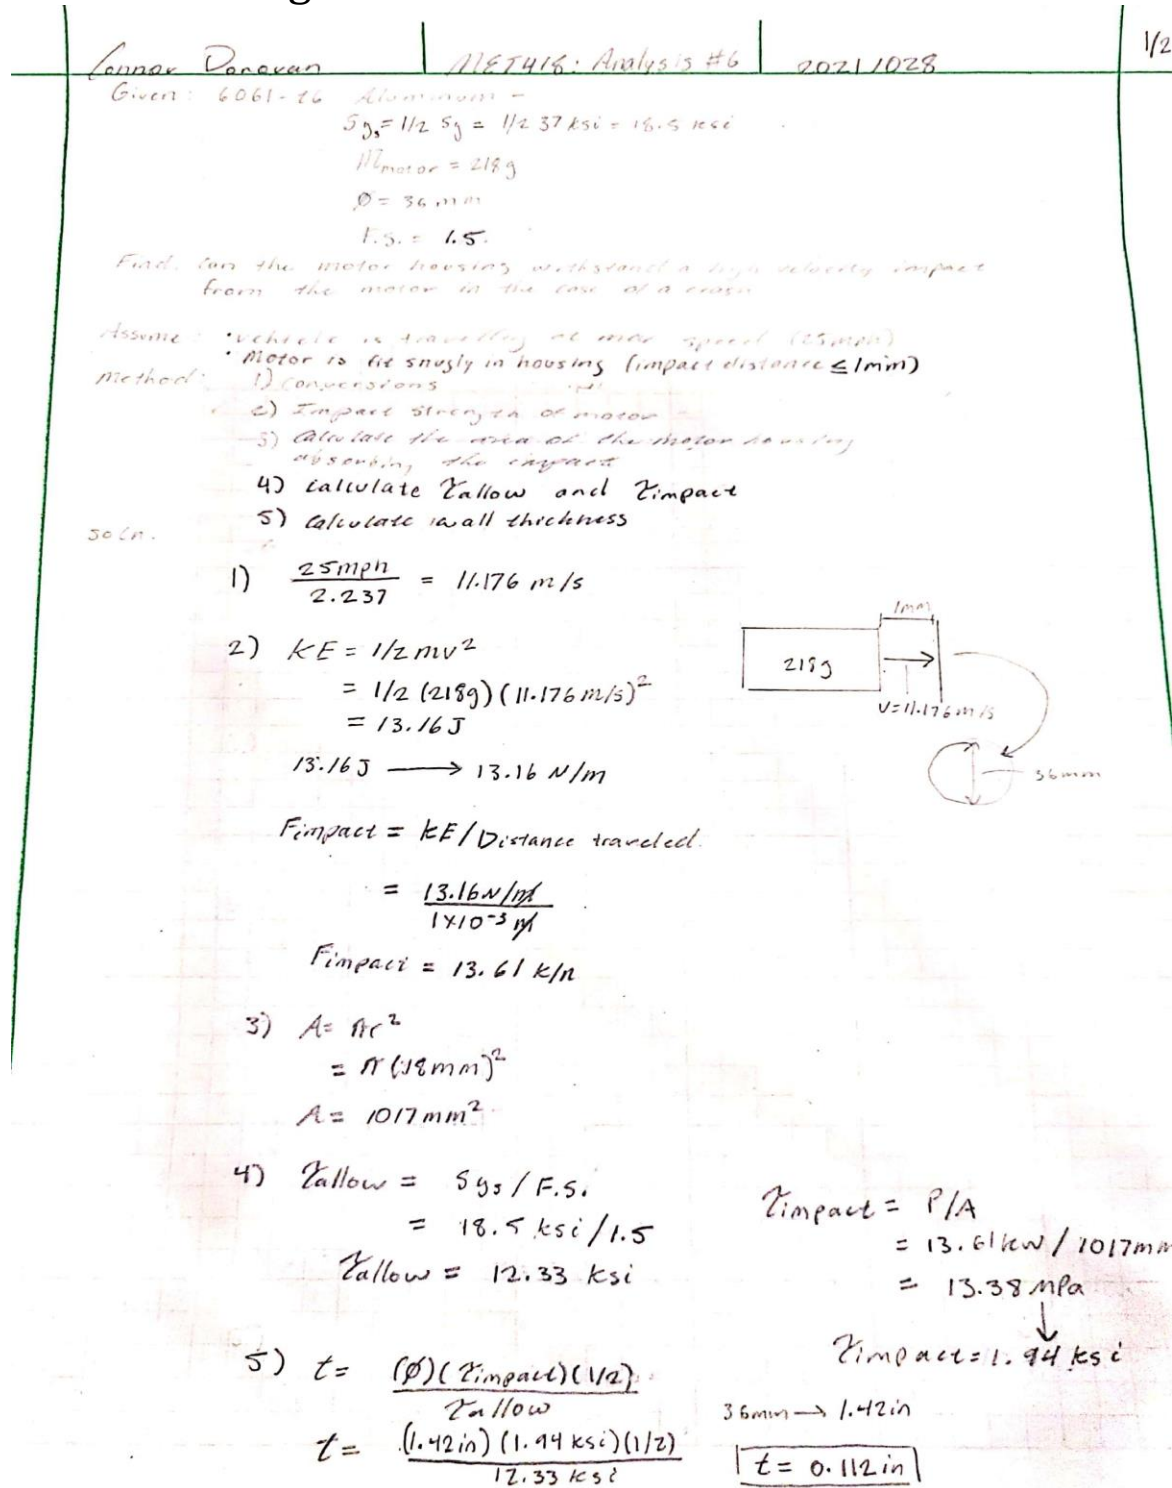 Connor Donovan
MET418: Analysis #6
20211028
1/2
Given: 6061-t6 Aluminum -
Sys = 1/2 Sy = 1/2 37 ksi = 18.5 ksi
Mmotor = 218g
Ø = 36mm
F.S. = 1.5
Find: Can the motor housing withstand a high velocity impact
from the motor in the case of a crash
Assume: • vehicle is travelling at max speed (25mph)
• Motor is fit snugly in housing (impact distance ≤ 1mm)
Method: 1) Conversions
2) Impact strength of motor
3) Calculate the area of the motor housing
absorbing the impact
4) calculate τallow and τimpact
5) Calculate wall thickness
Soln.
1) 25mph / 2.237 = 11.176 m/s
2) KE = 1/2 mv²
= 1/2 (218g)(11.176 m/s)²
= 13.16 J
13.16 J → 13.16 N/m
1mm
218g
V=11.176 m/s
36mm
Fimpact = KE/Distance traveled
= 13.16 N/m / 1x10⁻³ m
Fimpact = 13.61 k/n
3) A = πr²
= π(18mm)²
A = 1017mm²
4) τallow = Sys / F.S.
= 18.5 ksi / 1.5
τallow = 12.33 ksi
τimpact = P/A
= 13.61 kN / 1017mm
= 13.38 MPa
↓
τimpact = 1.94 ksi
5) t = (Ø)(τimpact)(1/2) / τallow
36mm → 1.42in
t = (1.42in)(1.94 ksi)(1/2) / 12.33 ksi
t = 0.112 in